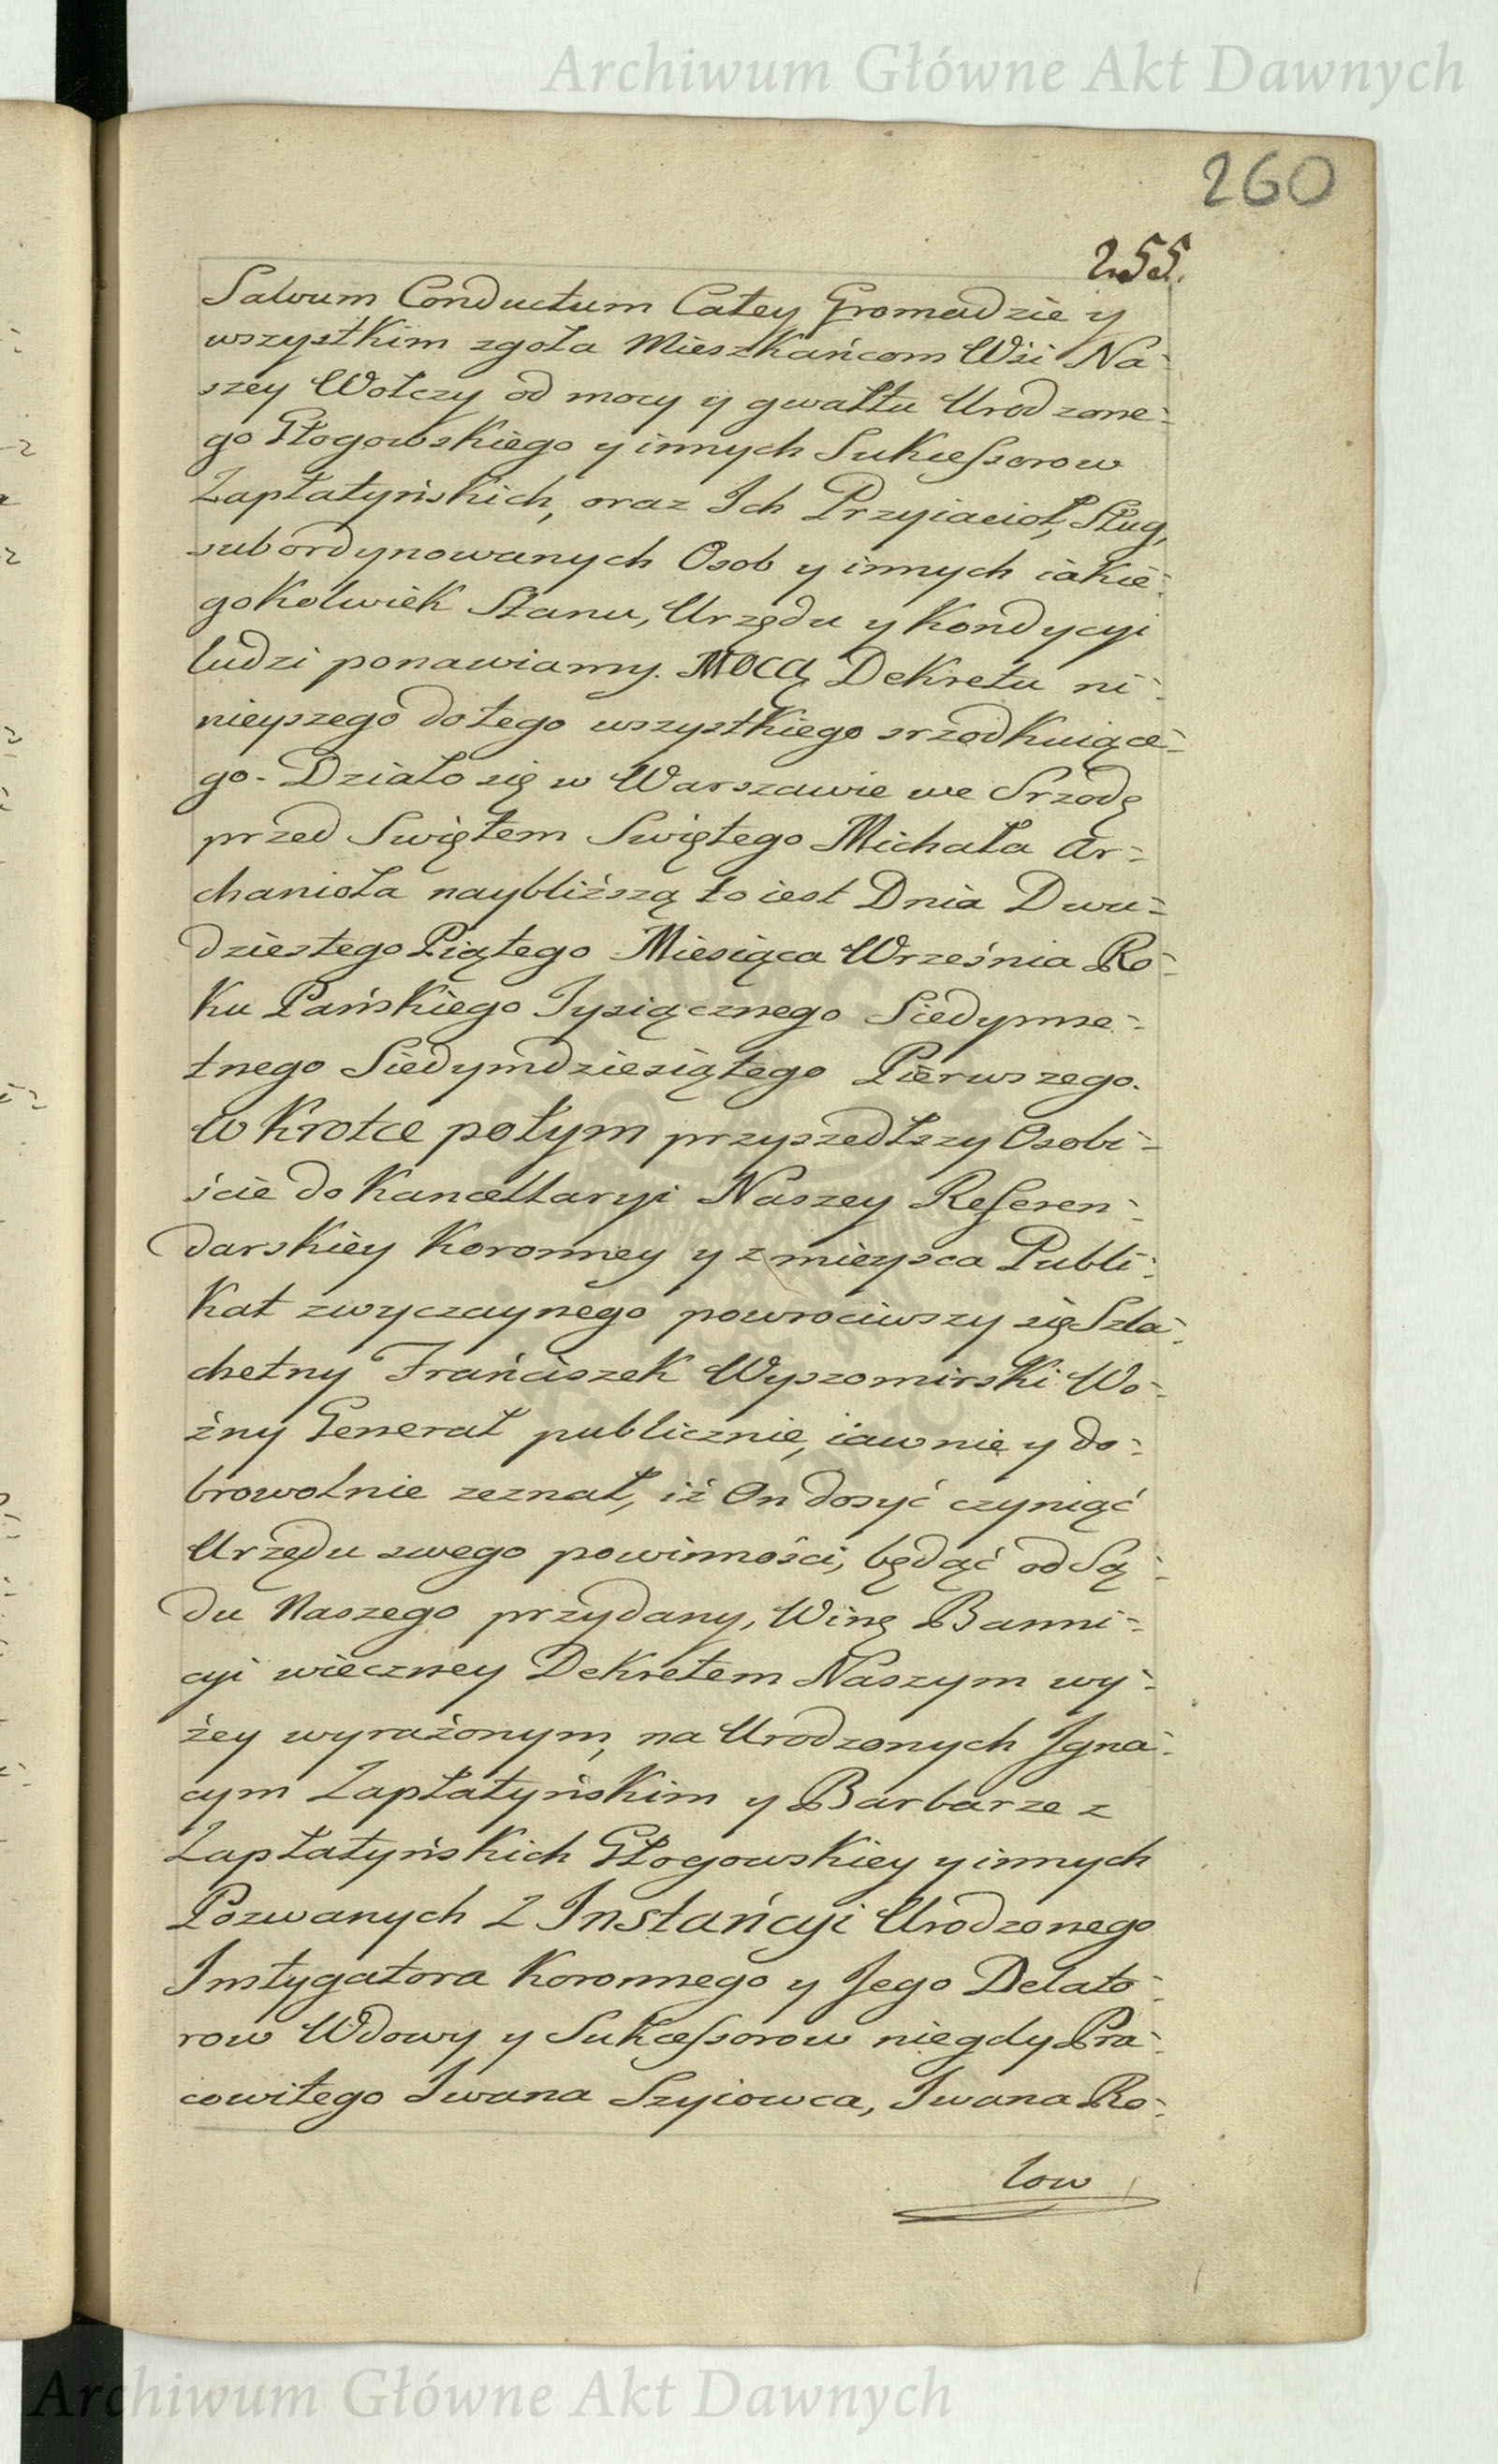 Archiwum Główne Akt Dawnych
260
255.
Salvum Conductum Całey Gromadzie y
wszystkim zgoła Mieszkańcom Wśi Na-
szey Wołczy od mocy y gwałtu Urodzone-
go Głogowskiego y innych Sukcessorow
Łapłatyńskich, oraz Ich Przyiacioł, Sług,
subordynowanych Osob y innych iakie-
gokolwiek Stanu, Urzędu y Kondycyi
ludzi ponawiamy. Mocą Dekretu ni-
nieyszego do tego wszystkiego srzodkuiące-
go. Działo się w Warszawie we Srzodę
przed Swiętem Swiętego Michała Ar-
chanioła naybliższą to iest Dnia Dwu-
dziestego Piątego Miesiąca Września Ro-
ku Pańskiego Tysiącznego Siedymse-
tnego Siedymdziesiątego Pierwszego.
W krotce potym przyszedłszy Osobi-
ście do Kancellaryi Naszey Referen-
darskiey Koronney y z mieysca Publi-
kat zwyczaynego powrociwszy się Szla-
chetny Franciszek Wyszomirski Wo-
źny Generał publicznie, iawnie y do-
browolnie zeznał, iż On dosyć czyniąć
Urzędu swego powinności, będąć od Są-
du Naszego przydany, Winę Banni-
cyi wieczney Dekretem Naszym wy-
żey wyrażonym, na Urodzonych Igna-
cym Łapłatyńskim y Barbarze z
Łapłatyńskich Głogowskiey y innych
Pozwanych z Instańcyi Urodzonego
Instygatora Koronnego y Jego Delato-
row Wdowy y Sukcessorow niegdy Pra-
cowitego Iwana Szyiowca, Iwana Ro-
low
Archiwum Główne Akt Dawnych